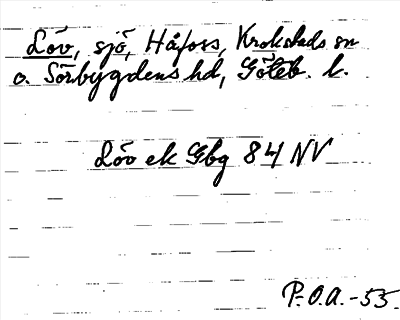 Löv, sjö, Håfors, Krokstads sn
o. Sörbygdens hd, Göteb. l.
Löv ek Gbg 84 NV
P.O.A.-55.